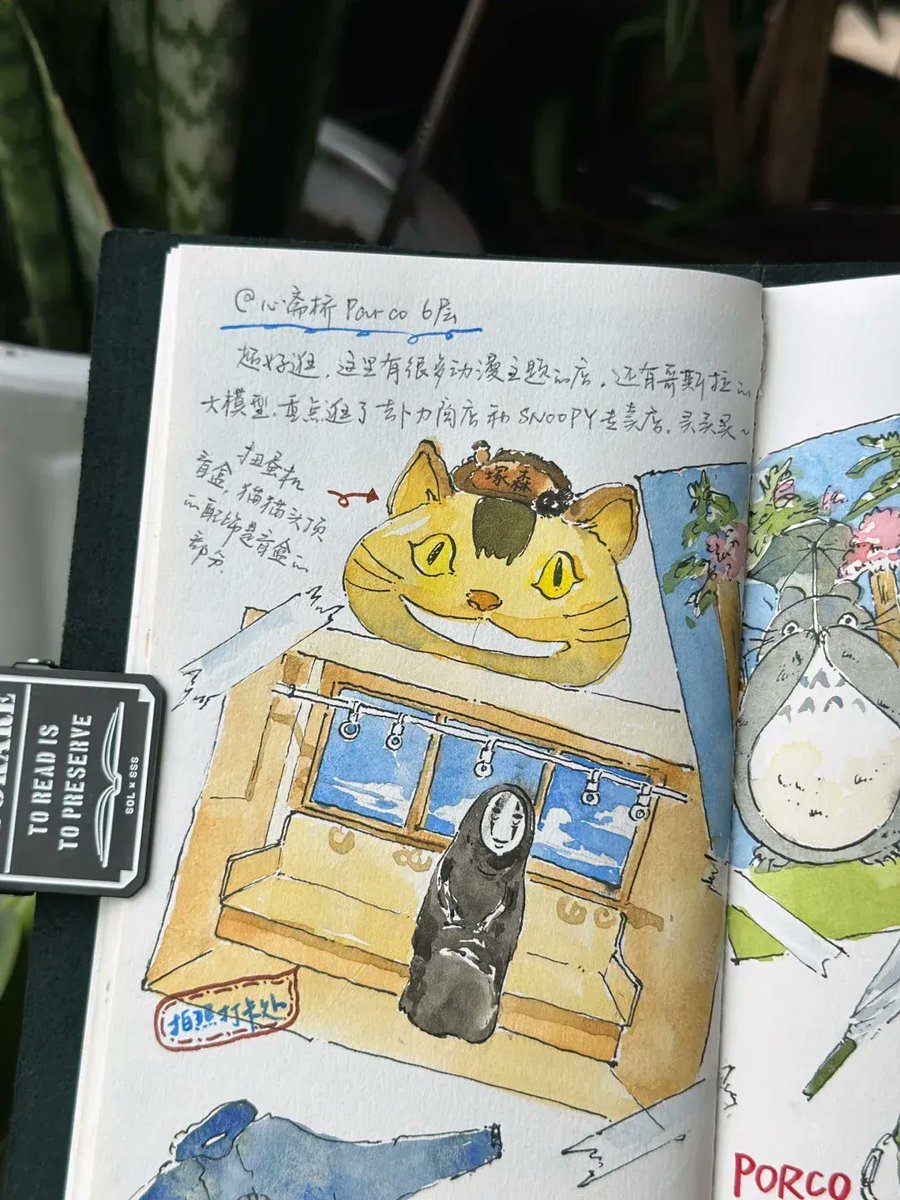 @心斋桥 Parco 6层
超好逛，这里有很多动漫主题の店，还有哥斯拉の
大模型，重点逛了吉卜力商店和SNOOPY专卖店，买买买~
扭蛋机
盲盒，猫猫头顶
の配饰是盲盒の
部分
塚森
拍照打卡处
TO READ IS
TO PRESERVE
SOL × SSS
PORCO